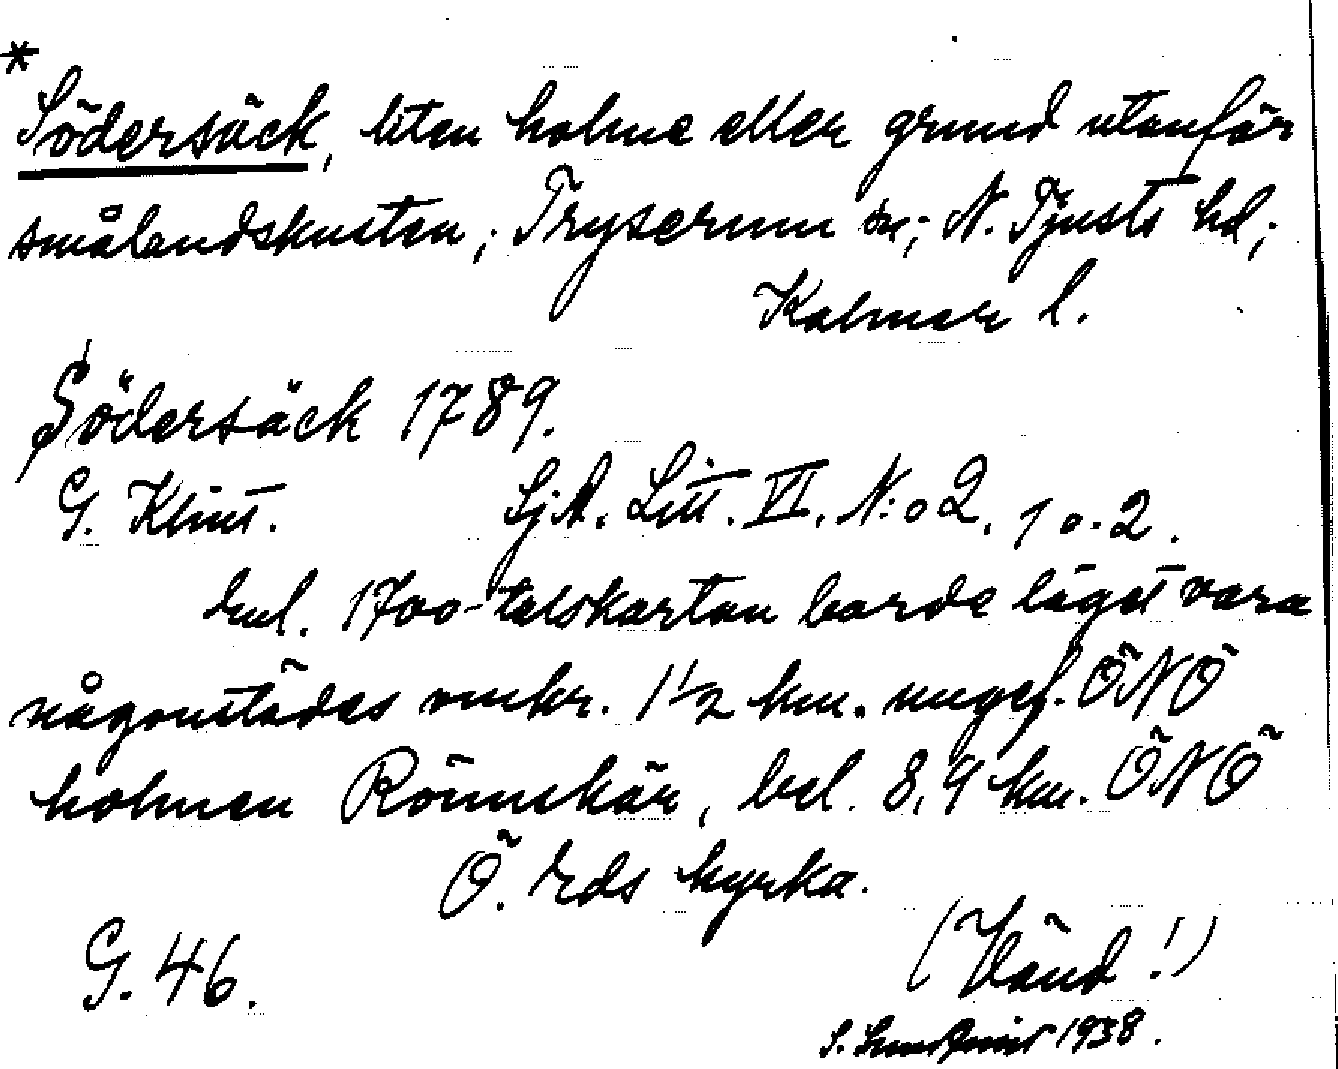 *
Södersäck, liten holme eller grund utanför
smålandskusten; Tryserum sn; N. Tjusts hd;
Kalmar l.
Södersäck 1789.
G. Klint. SjA. Litt. VI. N:o 2. 1 o. 2.
Enl. 1700-talskartan borde läget vara
någonstädes omkr. 1 1/2 km. ungef. ÖNÖ
holmen Rönnskär, bel. 8,9 km. ÖNÖ
Ö. Eds kyrka.
G. 46. (Vänd!)
1938.